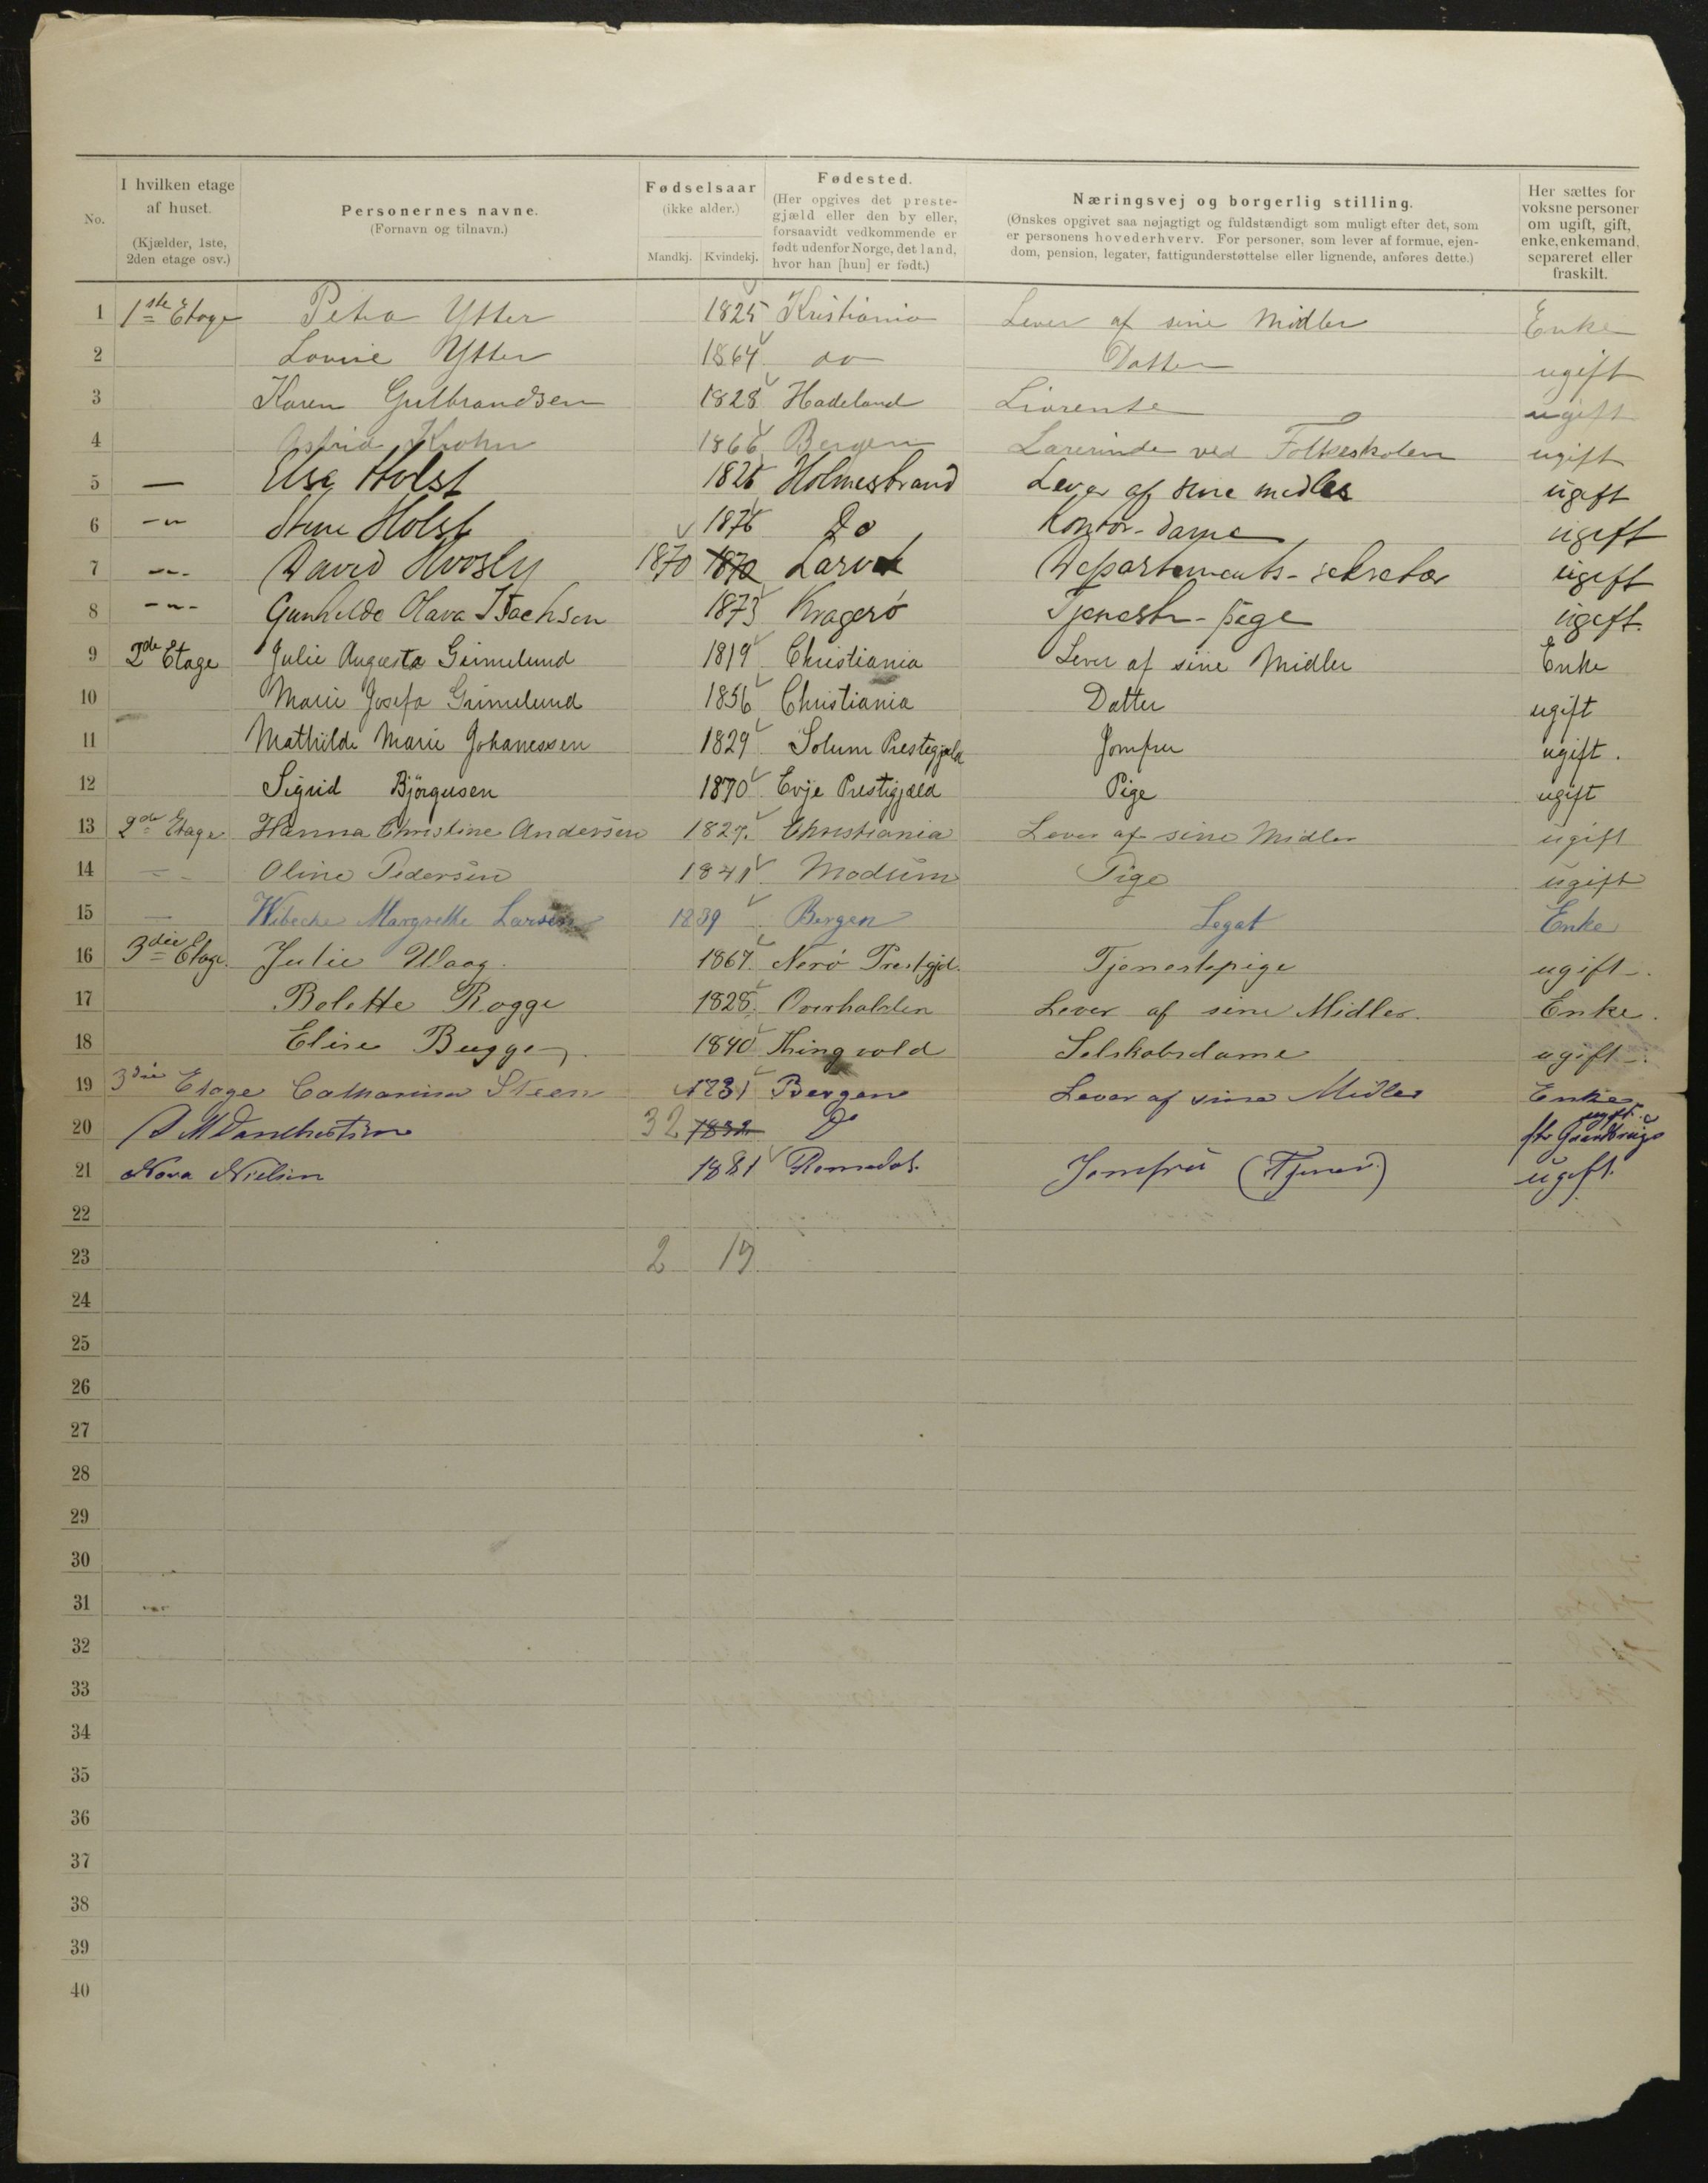 No.
I hvilken etage
af huset.
(Kjælder, 1ste,
2den etage osv.)
Personernes navne.
(Fornavn og tilnavn.)
Fødselsaar
(ikke alder.)
Mandkj. Kvindekj.
Fødested.
(Her opgives det preste-
gjæld eller den by eller,
forsaavidt vedkommende er
født udenfor Norge, det land,
hvor han [hun] er født.)
Næringsvej og borgerlig stilling.
(Ønskes opgivet saa nøjagtigt og fuldstændigt som muligt efter det, som
er personens hovederhverv. For personer, som lever af formue, ejen-
dom, pension, legater, fattigunderstøttelse eller lignende, anføres dette.)
Her sættes for
voksne personer
om ugift, gift,
enke, enkemand,
separeret eller
fraskilt.
1 1ste Etage Petra Ytter 1825 Kristiania Lever af sine Midler Enke
2 Lovise Ytter 1864 do Datter ugift
3 Karen Gulbrandsen 1828 Hadeland Livrente ugift
4 Astrid Krohn 1866 Bergen Lærerinde ved Folkeskolen ugift
5 — Elsa Holst 1825 Holmestrand Lever af sine midler ugift
6 -"- Holst 1876 Do Kontor-dame ugift
7 -"- David 1870 1870 Larvik Departements-sekretær ugift
8 -"- Gunhilde Olava Isachsen 1873 Kragerø Tjeneste-pige ugift.
9 2de Etage Julie Augusta Grimelund 1819 Christiania Lever af sine Midler Enke
10 Marie Josefa Grimelund 1856 Christiania Datter ugift
11 Mathilde Marie Johanessen 1829 Solum Prestegjæld Jomfru ugift.
12 Sigrid Bjørgusen 1870 Evje Prestigjæld Pige ugift
13 2de Etage Hanna Christine Andersen 1827. Christiania Lever af sine Midler ugift
14 — Oline Pedersen 1841 Modum Pige ugift
15 — Wibecke Margrethe Larsen 1839 Bergen Legat Enke
16 3die Etage. Julie Waag. 1867. Nerø Prestgjd. Tjenestepige ugift.
17 Bolette Rogge 1828. Overhalden Lever af sine Midler. Enke.
18 Elise Bugge 1840 Thingvold Selskabsdame ugift.
19 3die Etage Catharina Steen 1831 Bergen Lever af sine Midler Enke
20 32 1832 Do ugift.
21 Nora Nielsen 1881 Romsdal. Jomfru (Tjener) ugift.
22
23 2 19
24
25
26
27
28
29
30
31
32
33
34
35
36
37
38
39
40